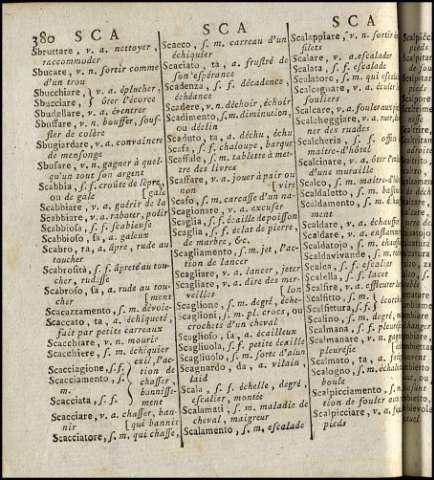 380 SCA
SCA
SCA
Sbruttare, v. a. nettoyer,
raccommoder
Sbucare, v. n. sortir comme
d'un trou
Sbucchiare, } v. a. éplucher,
Sbucciare, } ôter l'écorce
Sbudellare, v. a. éventrer
Sbuffare, v. n. bouffer, souf-
fler de colère
Sbugiardare, v. a. convaincre
de mensonge
Sbusare, v. n. gagner à quel-
qu'un tout son argent
Scabbia, s. f. croûte de lèpre,
ou de gale [gale
Scabbiare, v. a. guérir de la
Scabbiare, v. a. raboter, polir
Scabbiosa, s. f. scabieuse
Scabbioso, ta, a. galeux
Scabro, ra, a. âpre, rude au
toucher
Scabrosità, s. f. âpreté au tou-
cher, rudesse
Scabroso, sa, a. rude au tou-
cher [ment
Scacazzamento, s. m. dévoie-
Scaccato, ta, a. échiqueté,
fait par petits carreaux
Scacchiare, v. n. mourir
Scacchiere, s. m. échiquier
Scacciagione, s. f. } exil, l'ac-
tion de
Scacciamento, s. m. } chasser,
bannisse-
Scacciata, s. f. } ment
Scacciare, v. a. chasser, ban-
nir [qui bannit
Scacciatore, s. m. qui chasse,
Scacco, s. m. carreau d'un
échiquier
Scaciato, ta, a. frustré de
son espérance
Scadenza, s. f. décadence,
échéance
Scadere, v. n. déchoir, échoir
Scadimento, s. m. diminution,
ou déclin
Scaduto, ta, a. déchu, échu
Scafa, s. f. chaloupe, barque
Scaffale, s. m. tablette à met-
tre des livres
Scaffare, v. a. jouer à pair ou
non [vire
Scafo, s. m. carcasse d'un na-
Scagionare, v. a. excuser
Scaglia, s. f. écaille de poisson
Scaglia, s. f. éclat de pierre,
de marbre, &c.
Scagliamento, s. m. jet, l'ac-
tion de lancer
Scagliare, v. a. lancer, jeter
Scagliare, v. a. dire des mer-
veilles [lon
Scaglione, s. m. degré, éche-
Scaglioni, s. m. pl. crocs, ou
crochets d'un cheval
Scaglioso, sa, a. écailleux
Scagliuola, s. f. petite écaille
Scagliuolo, s. m. sorte d'alun
Scagnardo, da, a. vilain,
laid
Scala, s. f. échelle, degré,
escalier, montée
Scalamati, s. f. maladie de
cheval, maigreur
Scalamento, s. m. escalade
Scalappiare, v. n. sortir
filets
Scalare, v. a. escalader
Scalata, s. f. escalade
Scalatore, s. m. qui
Scalcagnare, v. a.
souliers
Scalcare, v. a. fouler aux
Scalcheggiare, v. a. ruer,
ner des ruades
Scalcheria, s. f.
maître-d'hôtel
Scalcinare, v. a. ôter
d'une muraille
Scalco, s. m. maître-d'
Scaldaletto, s. m.
Scaldamento, s. m.
ment
Scaldare, v. a. échauffer
Scaldare, v. a.
Scaldatojo, s. m.
Scaldavivande, s. m.
Scalea, s. f. escalier
Scalella, s. f. lacet
Scalfire, v. a.
Scalfitto, s. m. }
Scalfittura, s. f. }
Scalino, s. m. degré,
Scalmana, s. f. pleurésie
Scalmanare, v. n. gagner
pleurésie
Scalmato, ta, a.
Scalogno, s. m. échalote
boule
Scalpicciamento, s. m.
tion de fouler
Scalpicciare, v. a.
pieds